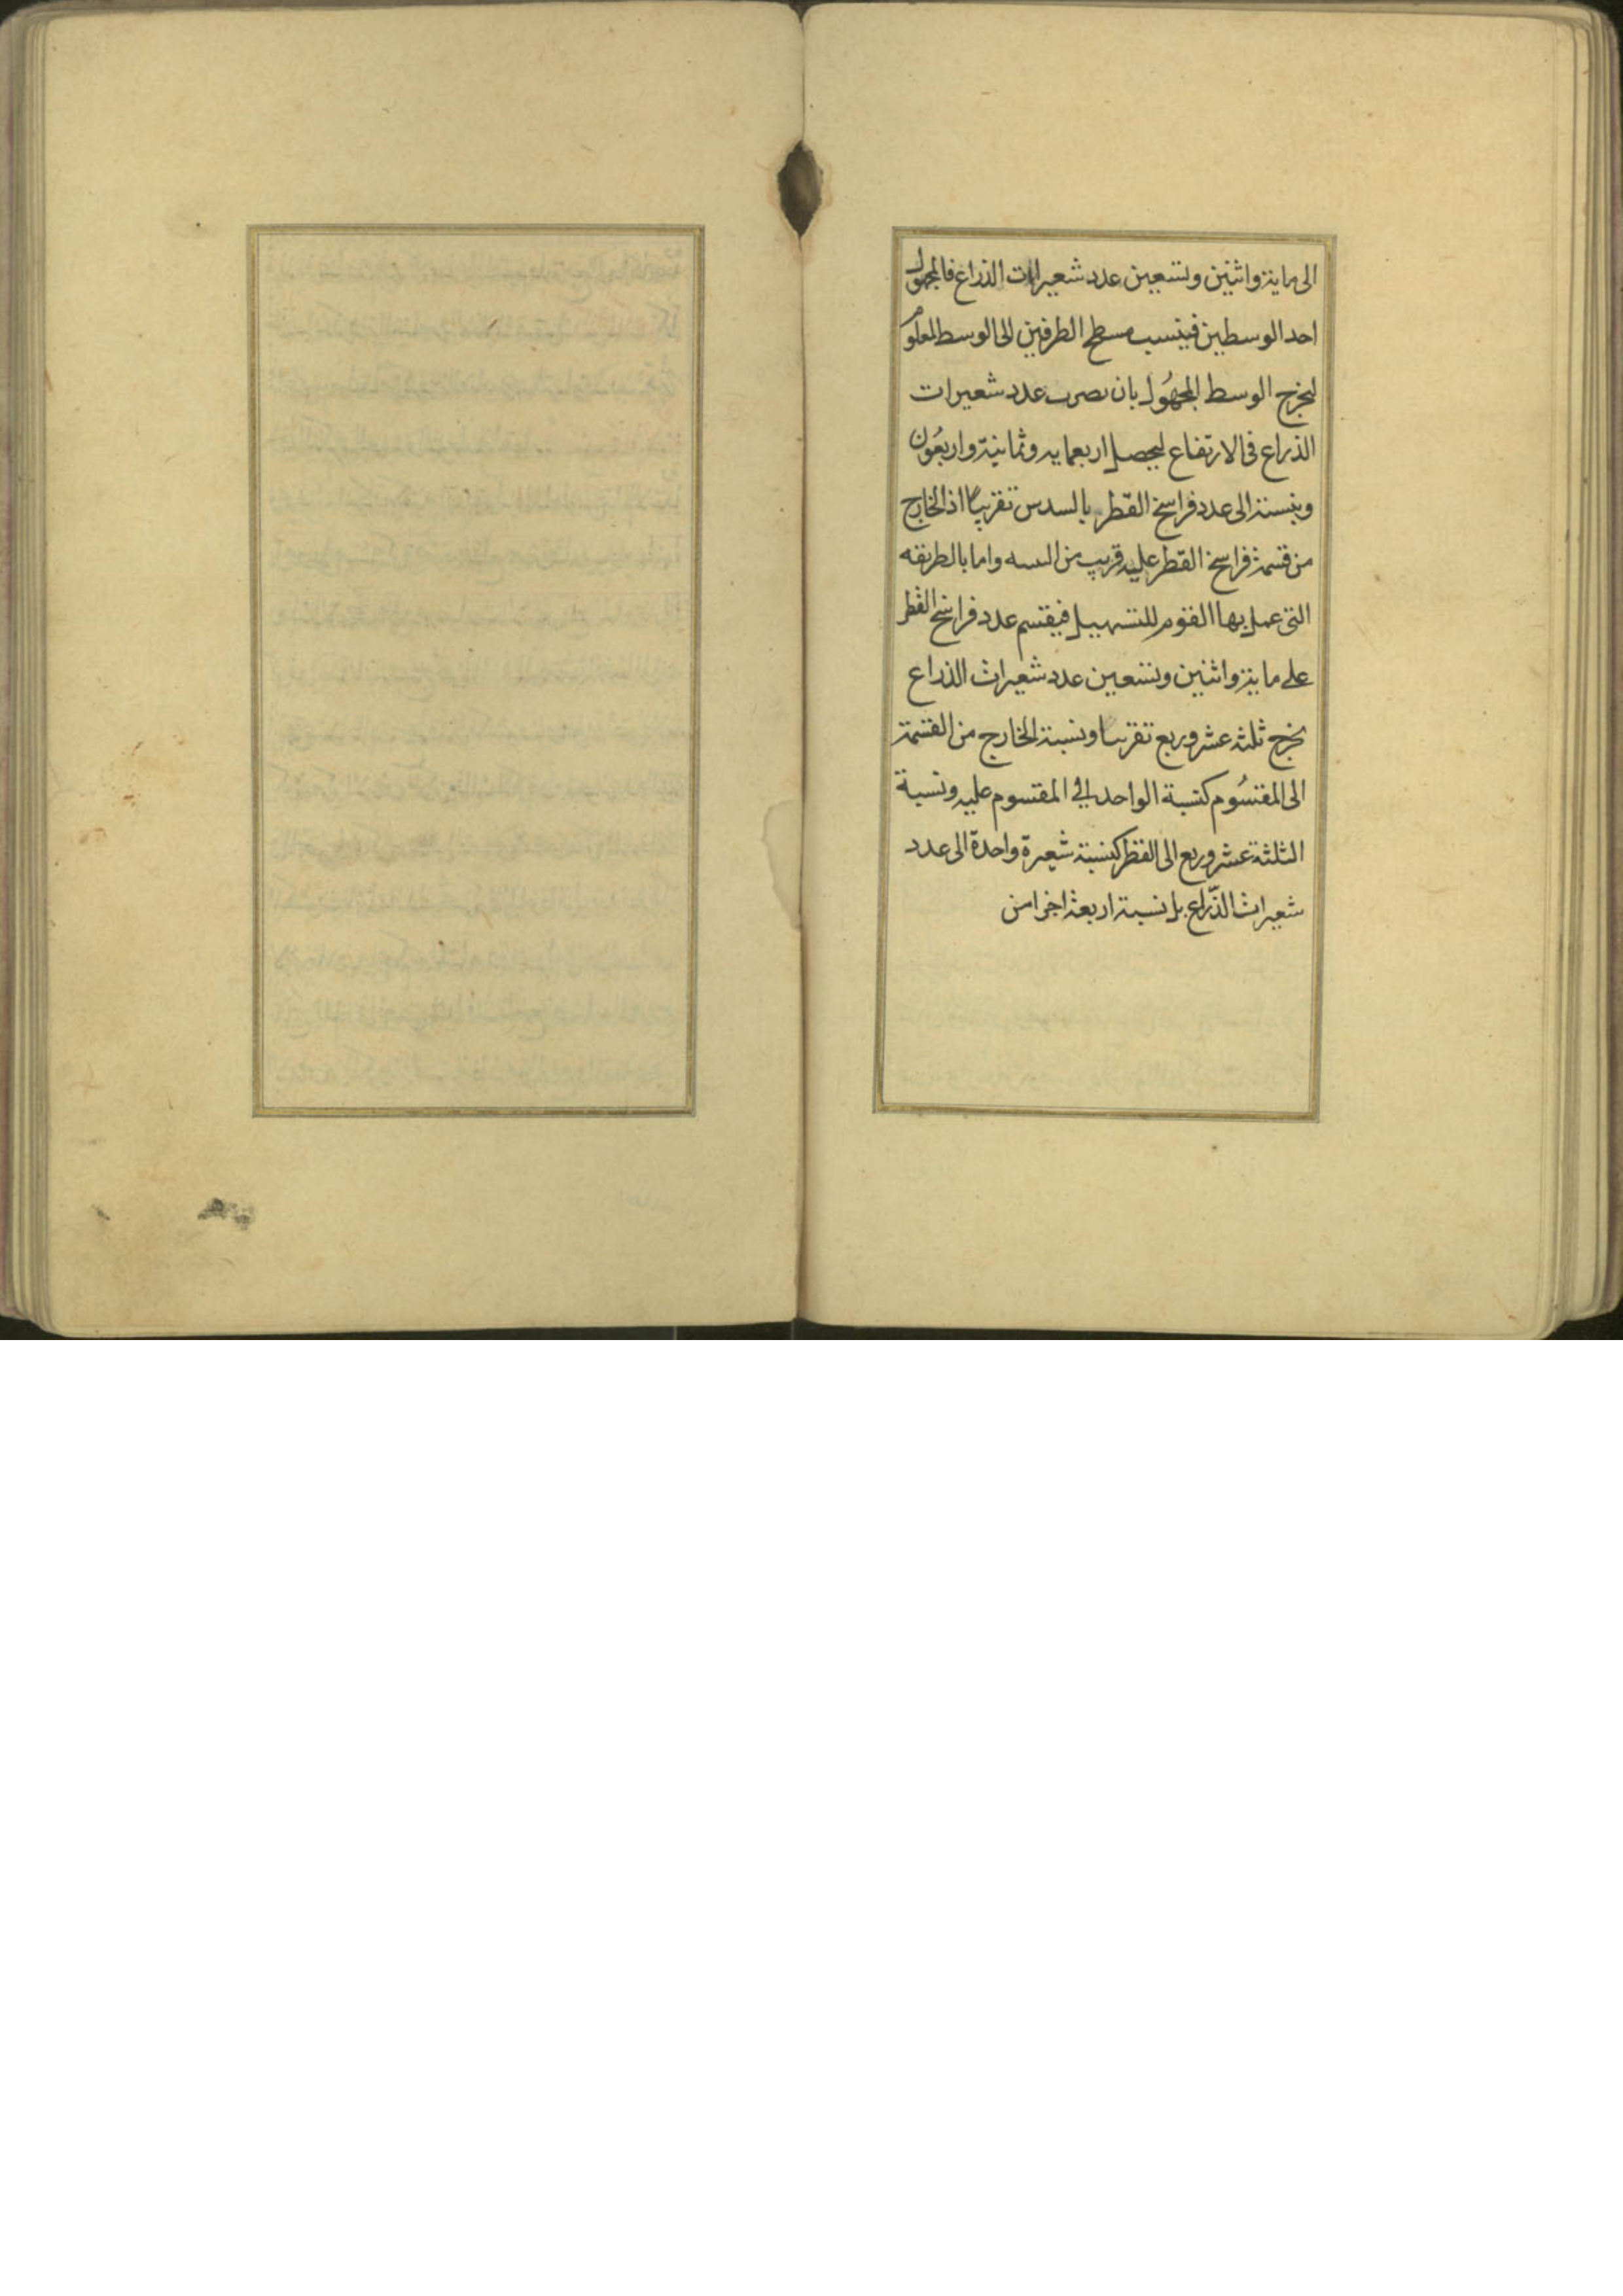 الى ماية واثنين وتسعين عدد شعيرات الذراع فالمجهول
احد الوسطين فينسب مسطح الطرفين الى الوسط المعلوم
ليخرج الوسط المجهُول بان نصرب عدد شعيرات
الذراع فى الارتفاع ليحصل اربعمايه وثمانية واربعُون
وينسبة الى عدد فراسخ القطر بالسدس تقريبا اذ الخارج
من قسمة فراسخ القطر عليه قريب من السه واما بالطريقه
التى عمل بها القوم للتسهيل فيقسم عدد فراسخ القطر
على ماية واثنين وتسعين عدد شعيرات الذراع
يخرج ثلثه عشر وربع تقريبا ونسبة الخارج من القسمة
الى المقسُوم كنسبة الواحد الى المقسوم عليه ونسبة
الثلثة عشر وربع الى القطر كنسبة شعيرة واحدة الى عدد
شعيرات الذّراع بل نسبة اربعة اجزا من